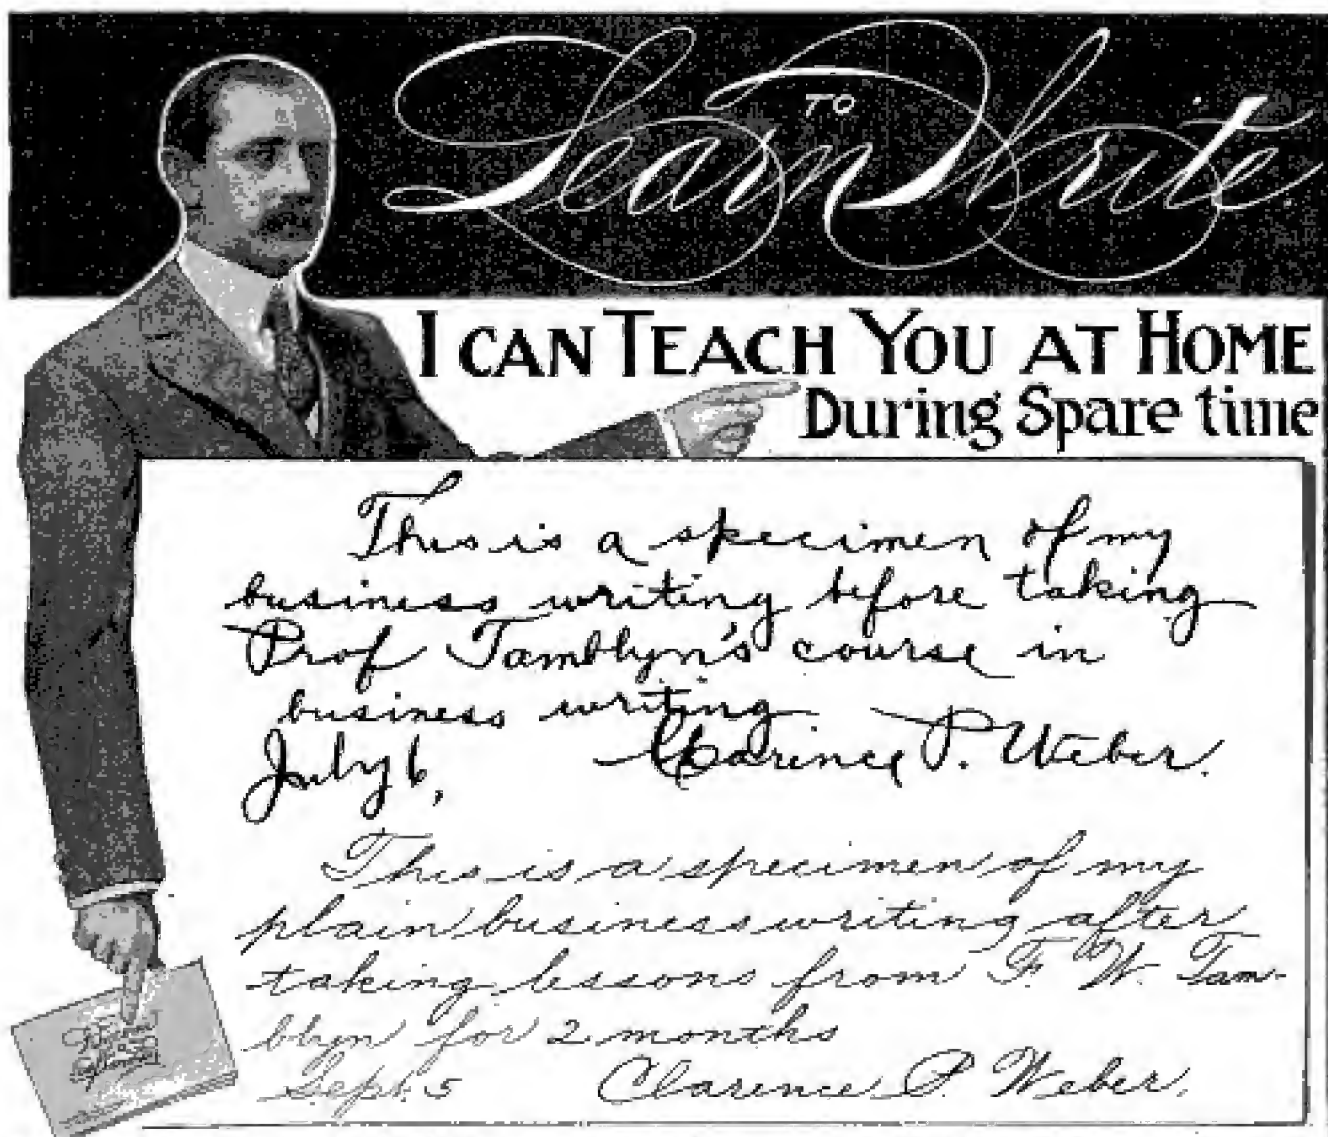 Learn TO Write
I CAN TEACH YOU AT HOME
During Spare time
This is a specimen of my
business writing before taking
Prof Tamblyn's course in
business writing.
July 6, Clarence P. Weber.
This is a specimen of my
plain business writing after
taking lessons from F. W. Tam-
blyn for 2 months
Sept. 5 Clarence P. Weber.